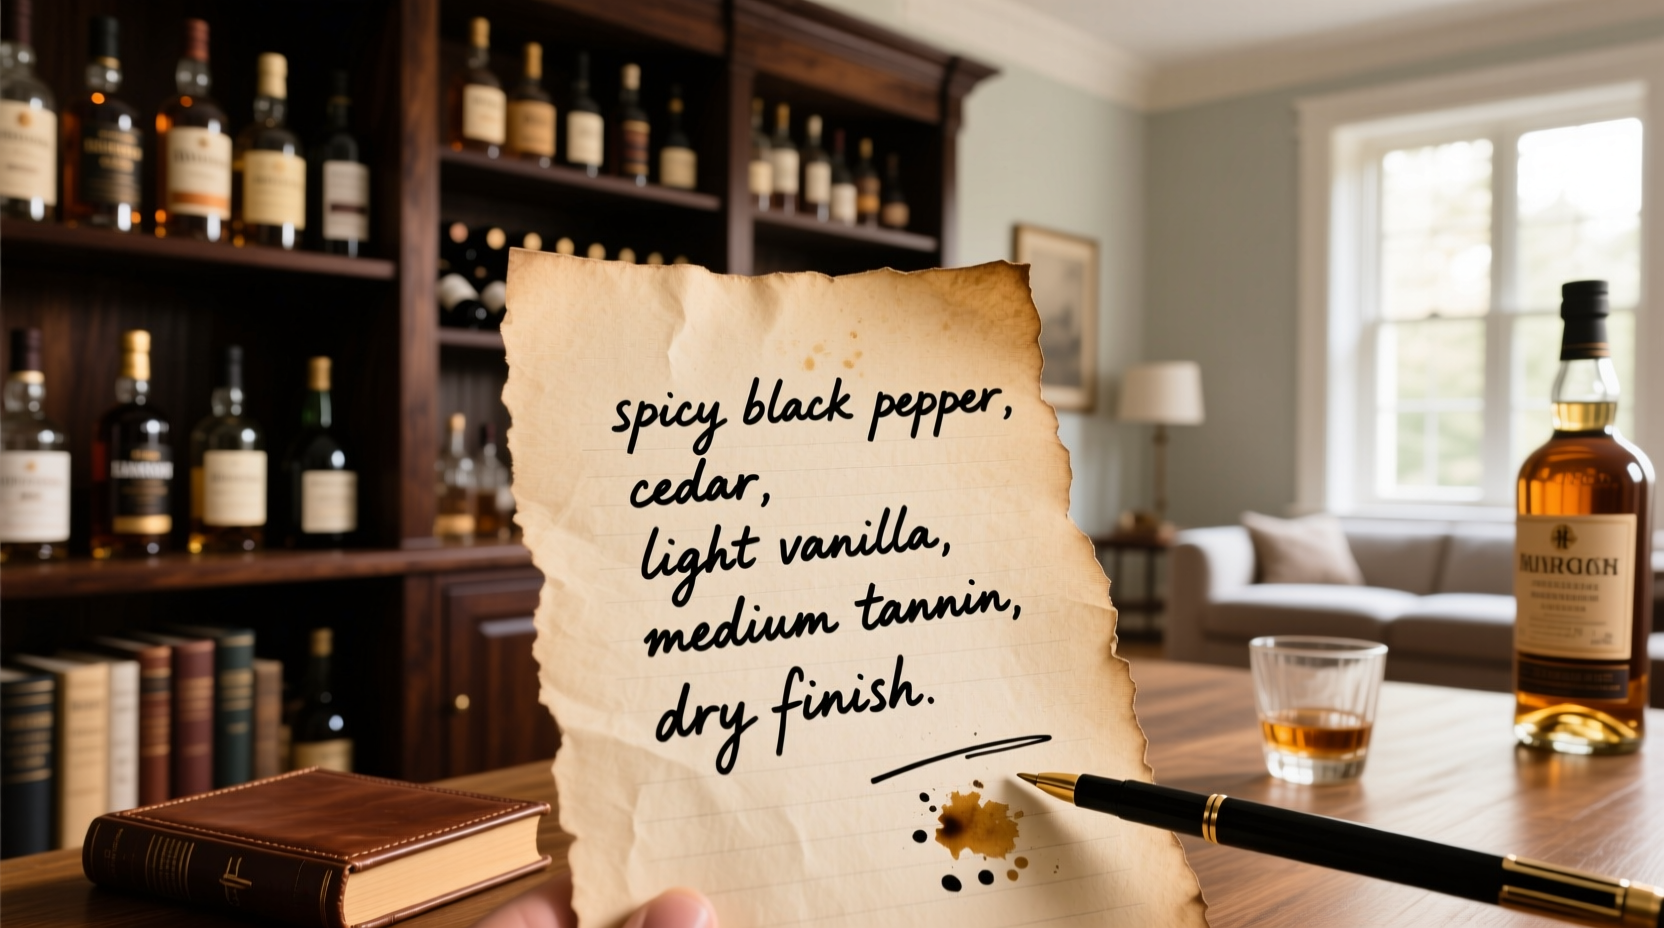 spicy black pepper,
cedar,
light vanilla,
medium tannin,
dry finish.